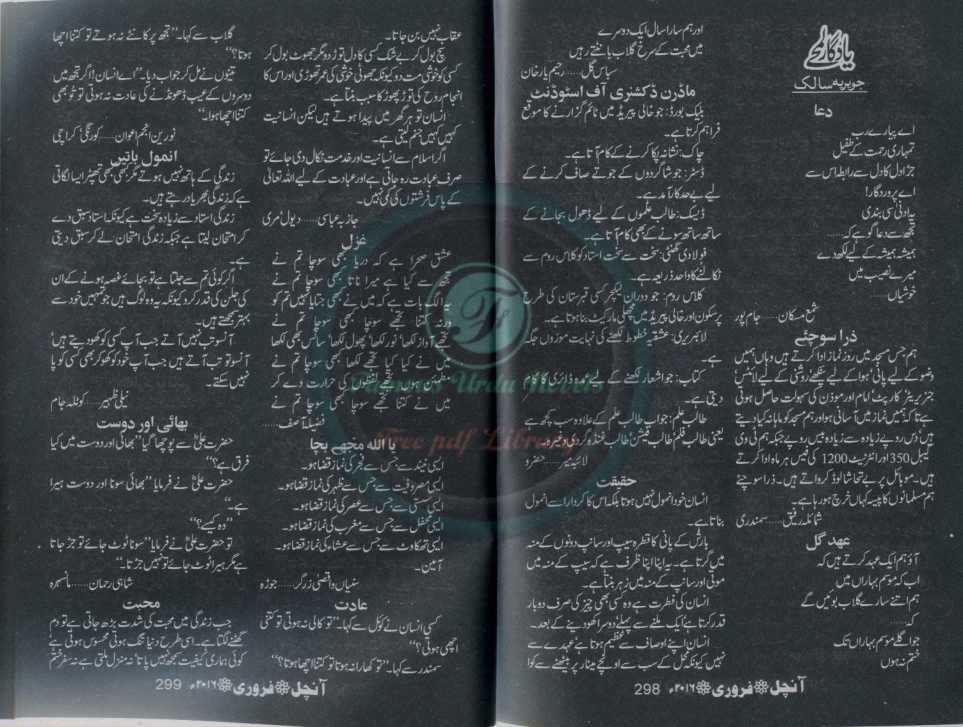 یادگار لمحے
جویریہ سالک
دعا
اے پیارے رب
تمہاری رحمت کے طفیل
جڑا دل کا دل سے رابطہ اس سے
اے پروردگار!
یہ ادنیٰ سی بندی
تجھ سے دعا گو ہے کہ.....
ہمیشہ ہمیشہ کے لیے لکھ دے
میرے نصیب میں
خوشیاں.....
شمع مسکان..... جام پور
ذرا سوچئے
ہم جس مسجد میں روز نماز ادا کرتے ہیں وہاں ہمیں
وضو کے لیے پانی، ہوا کے لیے پنکھے، روشنی کے لیے لائٹس
جنریٹر، کارپٹ، امام اور موذن کی سہولت حاصل ہوتی
ہے تاکہ ہمیں نماز میں آسانی ہو اور ہم مسجد کو ماہانہ کیا دیتے
ہیں دس روپے زیادہ سے زیادہ بیس روپے جبکہ ہم ٹی وی
کیبل 350 اور انٹرنیٹ 1200 کی فیس ہر ماہ ادا کرتے
ہیں۔ موبائل پر بے تحاشا لوڈ کرواتے ہیں۔ ذرا سوچئے
ہم مسلمانوں کا پیسہ کہاں خرچ ہورہا ہے۔
شمائلہ رفیق..... سمندری
عہد گل
آؤ ہم ایک عہد کرتے ہیں کہ
اب کہ موسم بہاراں میں
ہم اتنے سارے گلاب بوئیں گے
کہ.....
جو اگلے موسم بہاراں تک
ختم نہ ہوں
اور ہم سارا سال ایک دوسرے
میں محبت کے سرخ گلاب بانٹتے رہیں
سباس گل..... رحیم یار خان
ماڈرن ڈکشنری آف اسٹوڈنٹ
بلیک بورڈ: جو خالی پیریڈ میں ٹائم گزارنے کا موقع
فراہم کرتا ہے۔
چاک: نشانہ پکا کرنے کے کام آتا ہے۔
ڈسٹر: جو شاگردوں کے جوتے صاف کرنے کے
لیے بے حد کارآمد ہے۔
ڈیسک: طالب علموں کے لیے ڈھول بجانے کے
ساتھ ساتھ سونے کے بھی کام آتا ہے۔
فولادی گھنٹی: سخت سے سخت استاد کو کلاس روم سے
نکالنے کا واحد ذریعہ ہے۔
کلاس روم: جو دوران لیکچر کسی قبرستان کی طرح
پرسکون اور خالی پیریڈ میں مچھلی مارکیٹ بنا ہوتا ہے۔
لائبریری: عشقیہ خطوط لکھنے کی نہایت موزوں جگہ
ہے۔
کتاب: جو اشعار لکھنے کے لیے عمدہ ڈائری کا کام
دیتی ہے۔
طالب علم: جو اب طالب علم کے علاوہ سب کچھ ہے
یعنی طالب فلم طالب فیشن طالب غنڈہ گردی وغیرہ۔
لائبہ میر..... حضرو
حقیقت
انسان خود انمول نہیں ہوتا بلکہ اس کا کردار اسے انمول
بناتا ہے۔
بارش کے پانی کا قطرہ سیپ اور سانپ دونوں کے منہ
میں گرتا ہے۔ یہ اپنا اپنا ظرف ہے کہ سیپ کے منہ میں
موتی اور سانپ کے منہ میں زہر بنتا ہے۔
انسان کی فطرت ہے وہ کسی بھی چیز کی صرف دو بار
قدر کرتا ہے ایک ملنے سے پہلے دوسرا کھو دینے کے بعد۔
انسان اپنے اوصاف سے عظیم ہوتا ہے عہدے سے
نہیں کیونکہ محل کے سب سے اونچے مینار پر بیٹھنے سے کوا
آنچل فروری ۲۰۱۶ء 298
عقاب نہیں بن جاتا۔
سچ بول کر بے شک کسی کا دل توڑ دو مگر جھوٹ بول کر
کسی کو خوشی مت دو کیونکہ جھوٹی خوشی کی عمر تھوڑی اور اس کا
انجام روح کی توڑ پھوڑ کا سبب بنتا ہے۔
انسان تو ہر گھر میں پیدا ہوتے ہیں لیکن انسانیت
کہیں کہیں جنم لیتی ہے۔
اگر اسلام سے انسانیت اور خدمت نکال دی جائے تو
صرف عبادت رہ جاتی ہے اور عبادت کے لیے اللہ تعالیٰ
کے پاس فرشتوں کی کمی نہیں۔
جاذبہ عباسی..... دیول مری
غزل
عشق صحرا ہے کہ دریا کبھی سوچا تم نے
تجھ سے کیا ہے میرا ناتا کبھی سوچا تم نے
یہ الگ بات ہے کہ میں نے کبھی جتایا نہیں تم کو
ورنہ کتنا تجھے سوچا کبھی سوچا تم نے
تجھے آواز لکھا، نور لکھا، پھول لکھا، سانس بھی لکھا
میں نے کیا کیا تجھے لکھا کبھی سوچا تم نے
مطمئن ہوں تجھے لفظوں کی حرارت دے کر
میں نے کتنا تجھے سوچا کبھی سوچا تم نے
فضیلہ آصف.....
یا اللہ مجھے بچا
ایسی نیند سے جس سے فجر کی نماز قضا ہو۔
ایسی مصروفیت سے جس سے ظہر کی نماز قضا ہو۔
ایسی سستی سے جس سے عصر کی نماز قضا ہو۔
ایسی محفل سے جس سے مغرب کی نماز قضا ہو۔
ایسی تھکاوٹ سے جس سے عشاء کی نماز قضا ہو۔
آمین۔
سنیاں واقصیٰ زرگر..... جوڑہ
عادت
کسی انسان نے کوئل سے کہا۔ "تو کالی نہ ہوتی تو کتنی
اچھی ہوتی؟"
سمندر سے کہا۔ "تو کھارا نہ ہوتا تو کتنا اچھا ہوتا؟"
گلاب سے کہا۔ "تجھ پر کانٹے نہ ہوتے تو کتنا اچھا
ہوتا؟"
تینوں نے مل کر جواب دیا۔ "اے انسان! اگر تجھ میں
دوسروں کے عیب ڈھونڈنے کی عادت نہ ہوتی تو تُو بھی
کتنا اچھا ہوتا۔"
نورین انجم اعوان..... کورنگی کراچی
انمول باتیں
زندگی کے ہاتھ نہیں ہوتے مگر کبھی کبھی تھپڑ ایسا لگاتی
ہے کہ زندگی بھر یاد رہتے ہیں۔
زندگی استاد سے زیادہ سخت ہے کیونکہ استاد سبق دے
کر امتحان لیتا ہے جبکہ زندگی امتحان لے کر سبق دیتی
ہے۔
اگر کوئی تم سے جلتا ہے تو بجائے غصہ ہونے کے ان
کی جلن کی قدر کرو کیونکہ یہ وہ لوگ ہیں جو تمہیں خود سے
بہتر سمجھتے ہیں۔
آنسو تب نہیں آتے جب آپ کسی کو کھو دیتے ہیں
آنسو تو تب آتے ہیں جب آپ خود کو کھو کر بھی کسی کو پا
نہیں سکتے۔
نیلی ظہیر..... کوٹلہ جام
بھائی اور دوست
حضرت علیؓ سے پوچھا گیا "بھائی اور دوست میں کیا
فرق ہے؟"
حضرت علیؓ نے فرمایا "بھائی سونا اور دوست ہیرا
ہے۔"
"وہ کیسے؟"
تو حضرت علیؓ نے فرمایا "سونا ٹوٹ جائے تو جڑ جاتا
ہے مگر ہیرا ٹوٹ جائے تو نہیں جڑتا۔"
شاہی رحمان..... مانسہرہ
محبت
جب زندگی میں محبت کی شدت بڑھ جاتی ہے تو دم
گھٹنے لگتا ہے۔ اسی طرح دنیا تنگ ہوتی محسوس ہوتی ہے
کوئی ہماری کیفیت سمجھ نہیں پاتا نہ منزل ملتی ہے نہ سفر ختم
آنچل فروری ۲۰۱۶ء 299
Urdu Novels
Free pdf Library